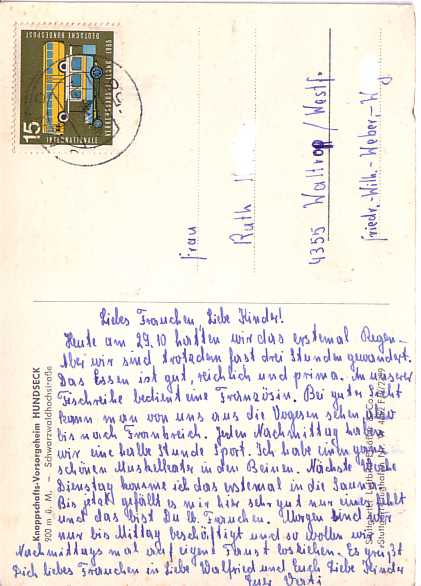 15
DEUTSCHE BUNDESPOST
Frau
Ruth
4355 Waltrop / Westf.
Friedr.-Wilh.-Weber-W
Knappschafts-Vorsorgeheim HUNDSECK
900 m ü. M. — Schwarzwaldhochstraße
Liebes Frauchen, Liebe Kinder!
Heute am 29.10 hatten wir das erstemal Regen.
Aber wir sind trotzdem fast drei Stunden gewandert.
Das Essen ist gut, reichlich und prima. In unserer
Tischreihe bedient eine Französin. Bei guter Sicht
kann man von uns aus die Vogesen sehen, also
bis nach Frankreich. Jeden Nachmittag haben
wir eine halbe Stunde Sport. Ich habe einen ganz
schönen Muskelkater in den Beinen. Nächste Woche
Dienstag komme ich das erstemal in die Sauna.
Bis jetzt gefällt es mir hier sehr gut nur einer fehlt
und das bist Du lb. Frauchen. Morgen sind wir
nur bis Mittag beschäftigt und so wollen wir
Nachmittags mal auf eigene Faust losziehen. Es grüßt
Dich liebes Frauchen in Liebe Walfried und Euch Liebe Kinder
Euer Vati